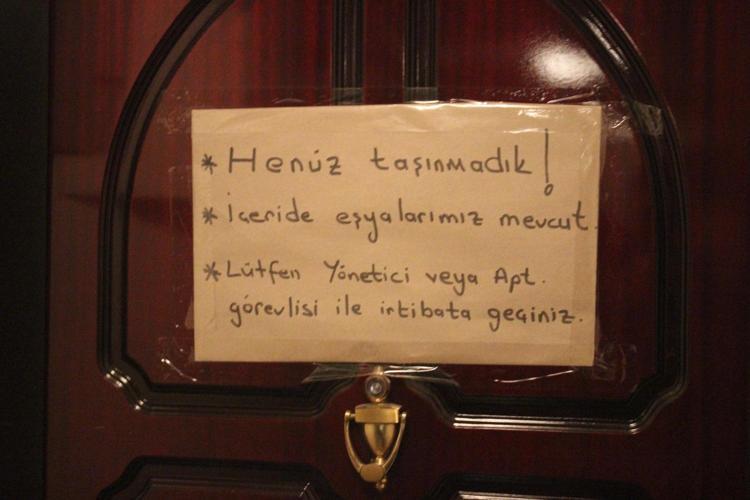 * Henüz taşınmadık!
* İçeride eşyalarımız mevcut.
* Lütfen Yönetici veya Apt.
görevlisi ile irtibata geçiniz.